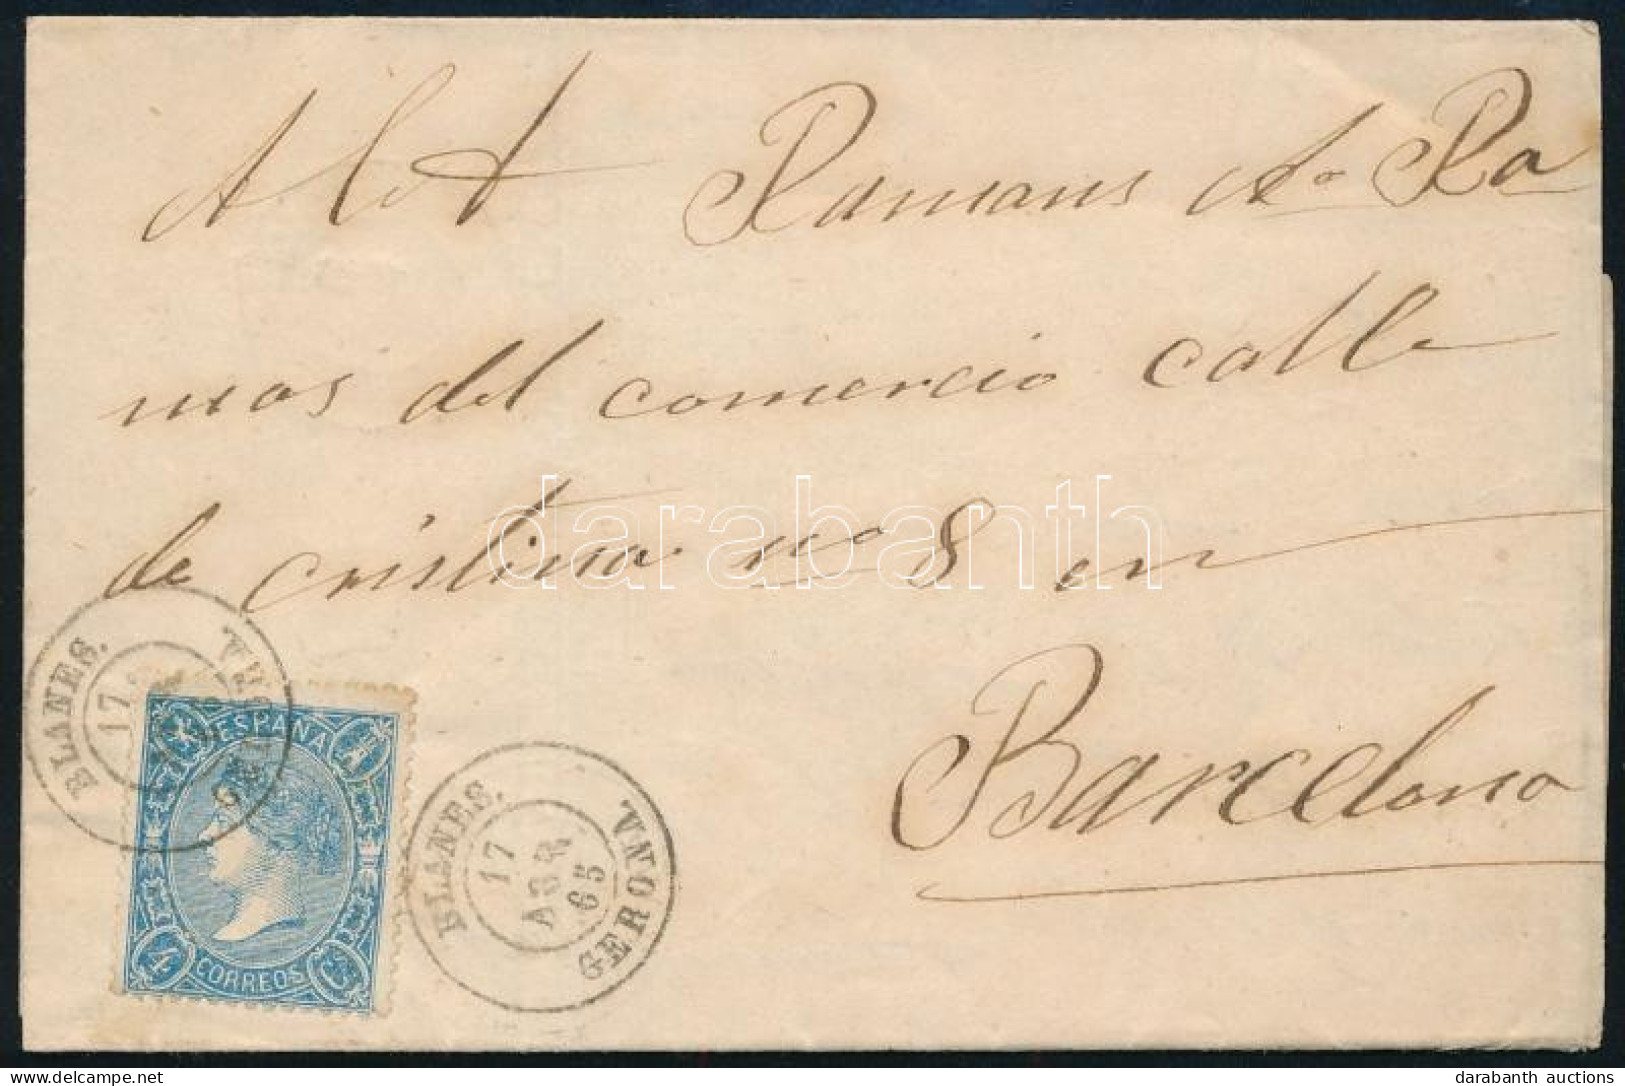 Ramans
mas del comercio calle
de cristina nº 8 en
Barcelona
BLANES.
17
GERONA
ESPAÑA
4 CORREOS Cs
BLANES.
17
ABR
65
GERONA
darabanth
darabanth auctions